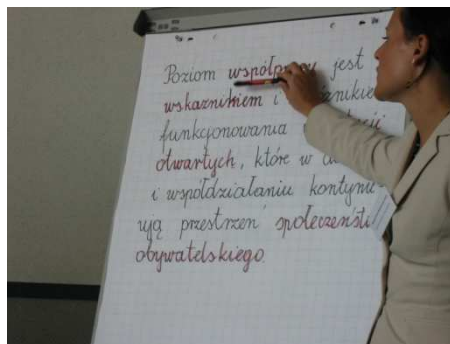 Poziom współpracy jest
wskaźnikiem i
funkcjonowania
otwartych, które w
i współdziałaniu kontynu
ują przestrzeń społeczeńst
obywatelskiego.